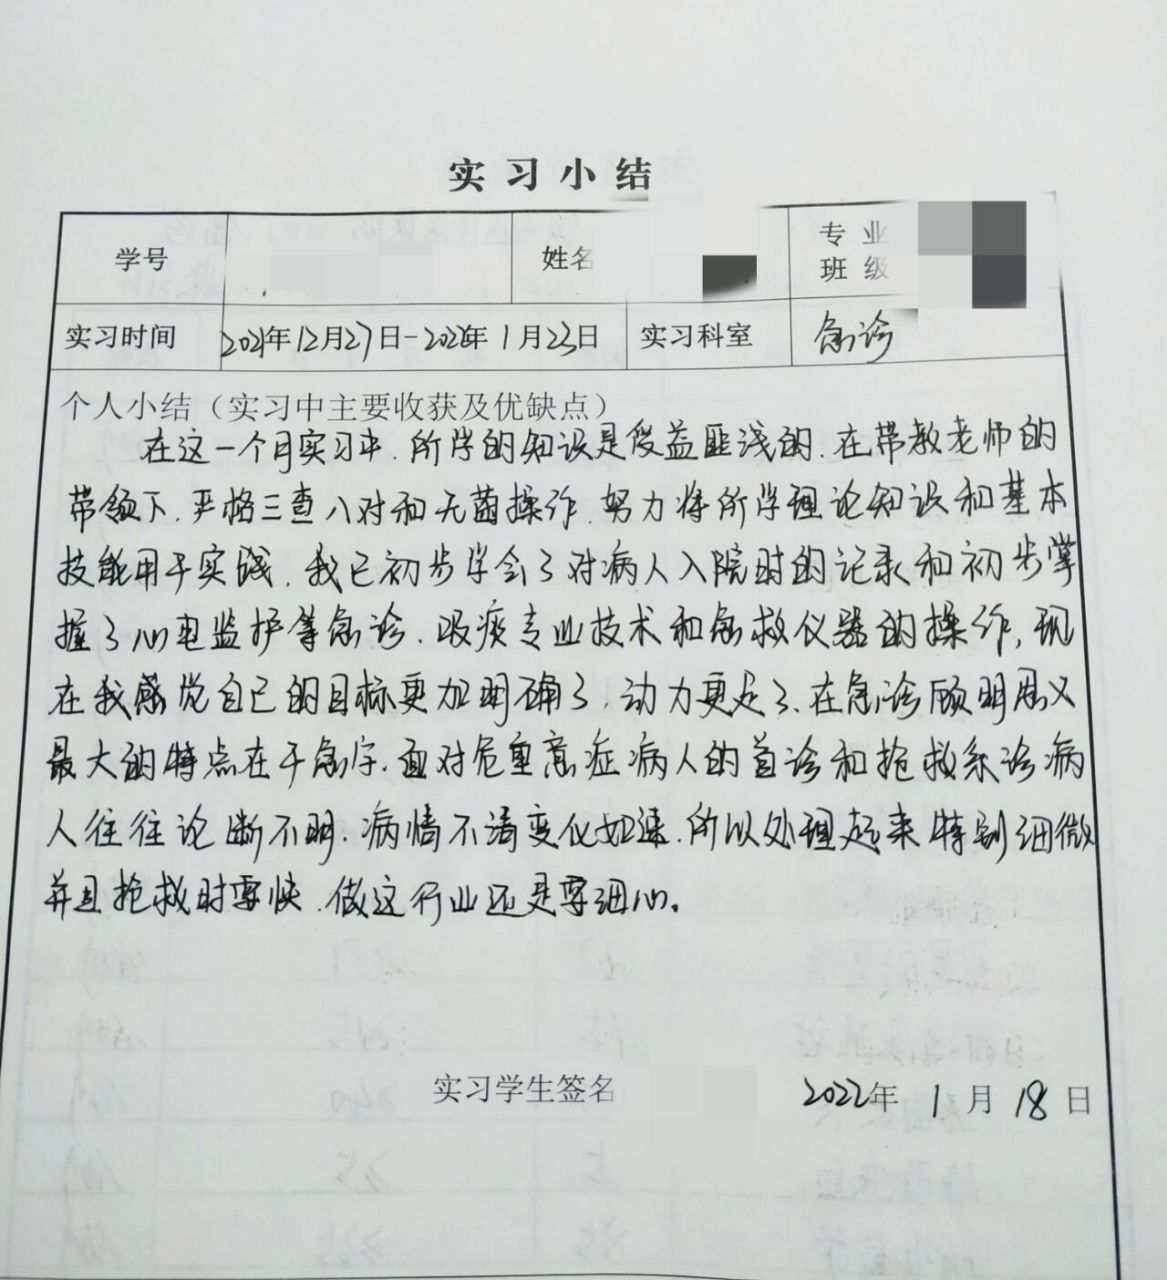 实习小结
学号 姓名 专业班级
实习时间 2021年12月27日-2022年1月23日 实习科室 急诊
个人小结（实习中主要收获及优缺点）
在这一个月实习中.所学的知识是受益匪浅的.在带教老师的
带领下.严格三查八对和无菌操作.努力将所学理论知识和基本
技能用于实践.我已初步学会了对病人入院时的记录和初步掌
握了心电监护等急诊.吸痰专业技术和急救仪器的操作,现
在我感觉自己的目标更加明确了.动力更足了.在急诊顾明思义
最大的特点在于急字.面对危重急症病人的首诊和抢救急诊病
人往往论断不明.病情不清变化如速.所以处理起来特别细微
并且抢救时要快.做这行业还是要细心。
实习学生签名 2022年1月18日